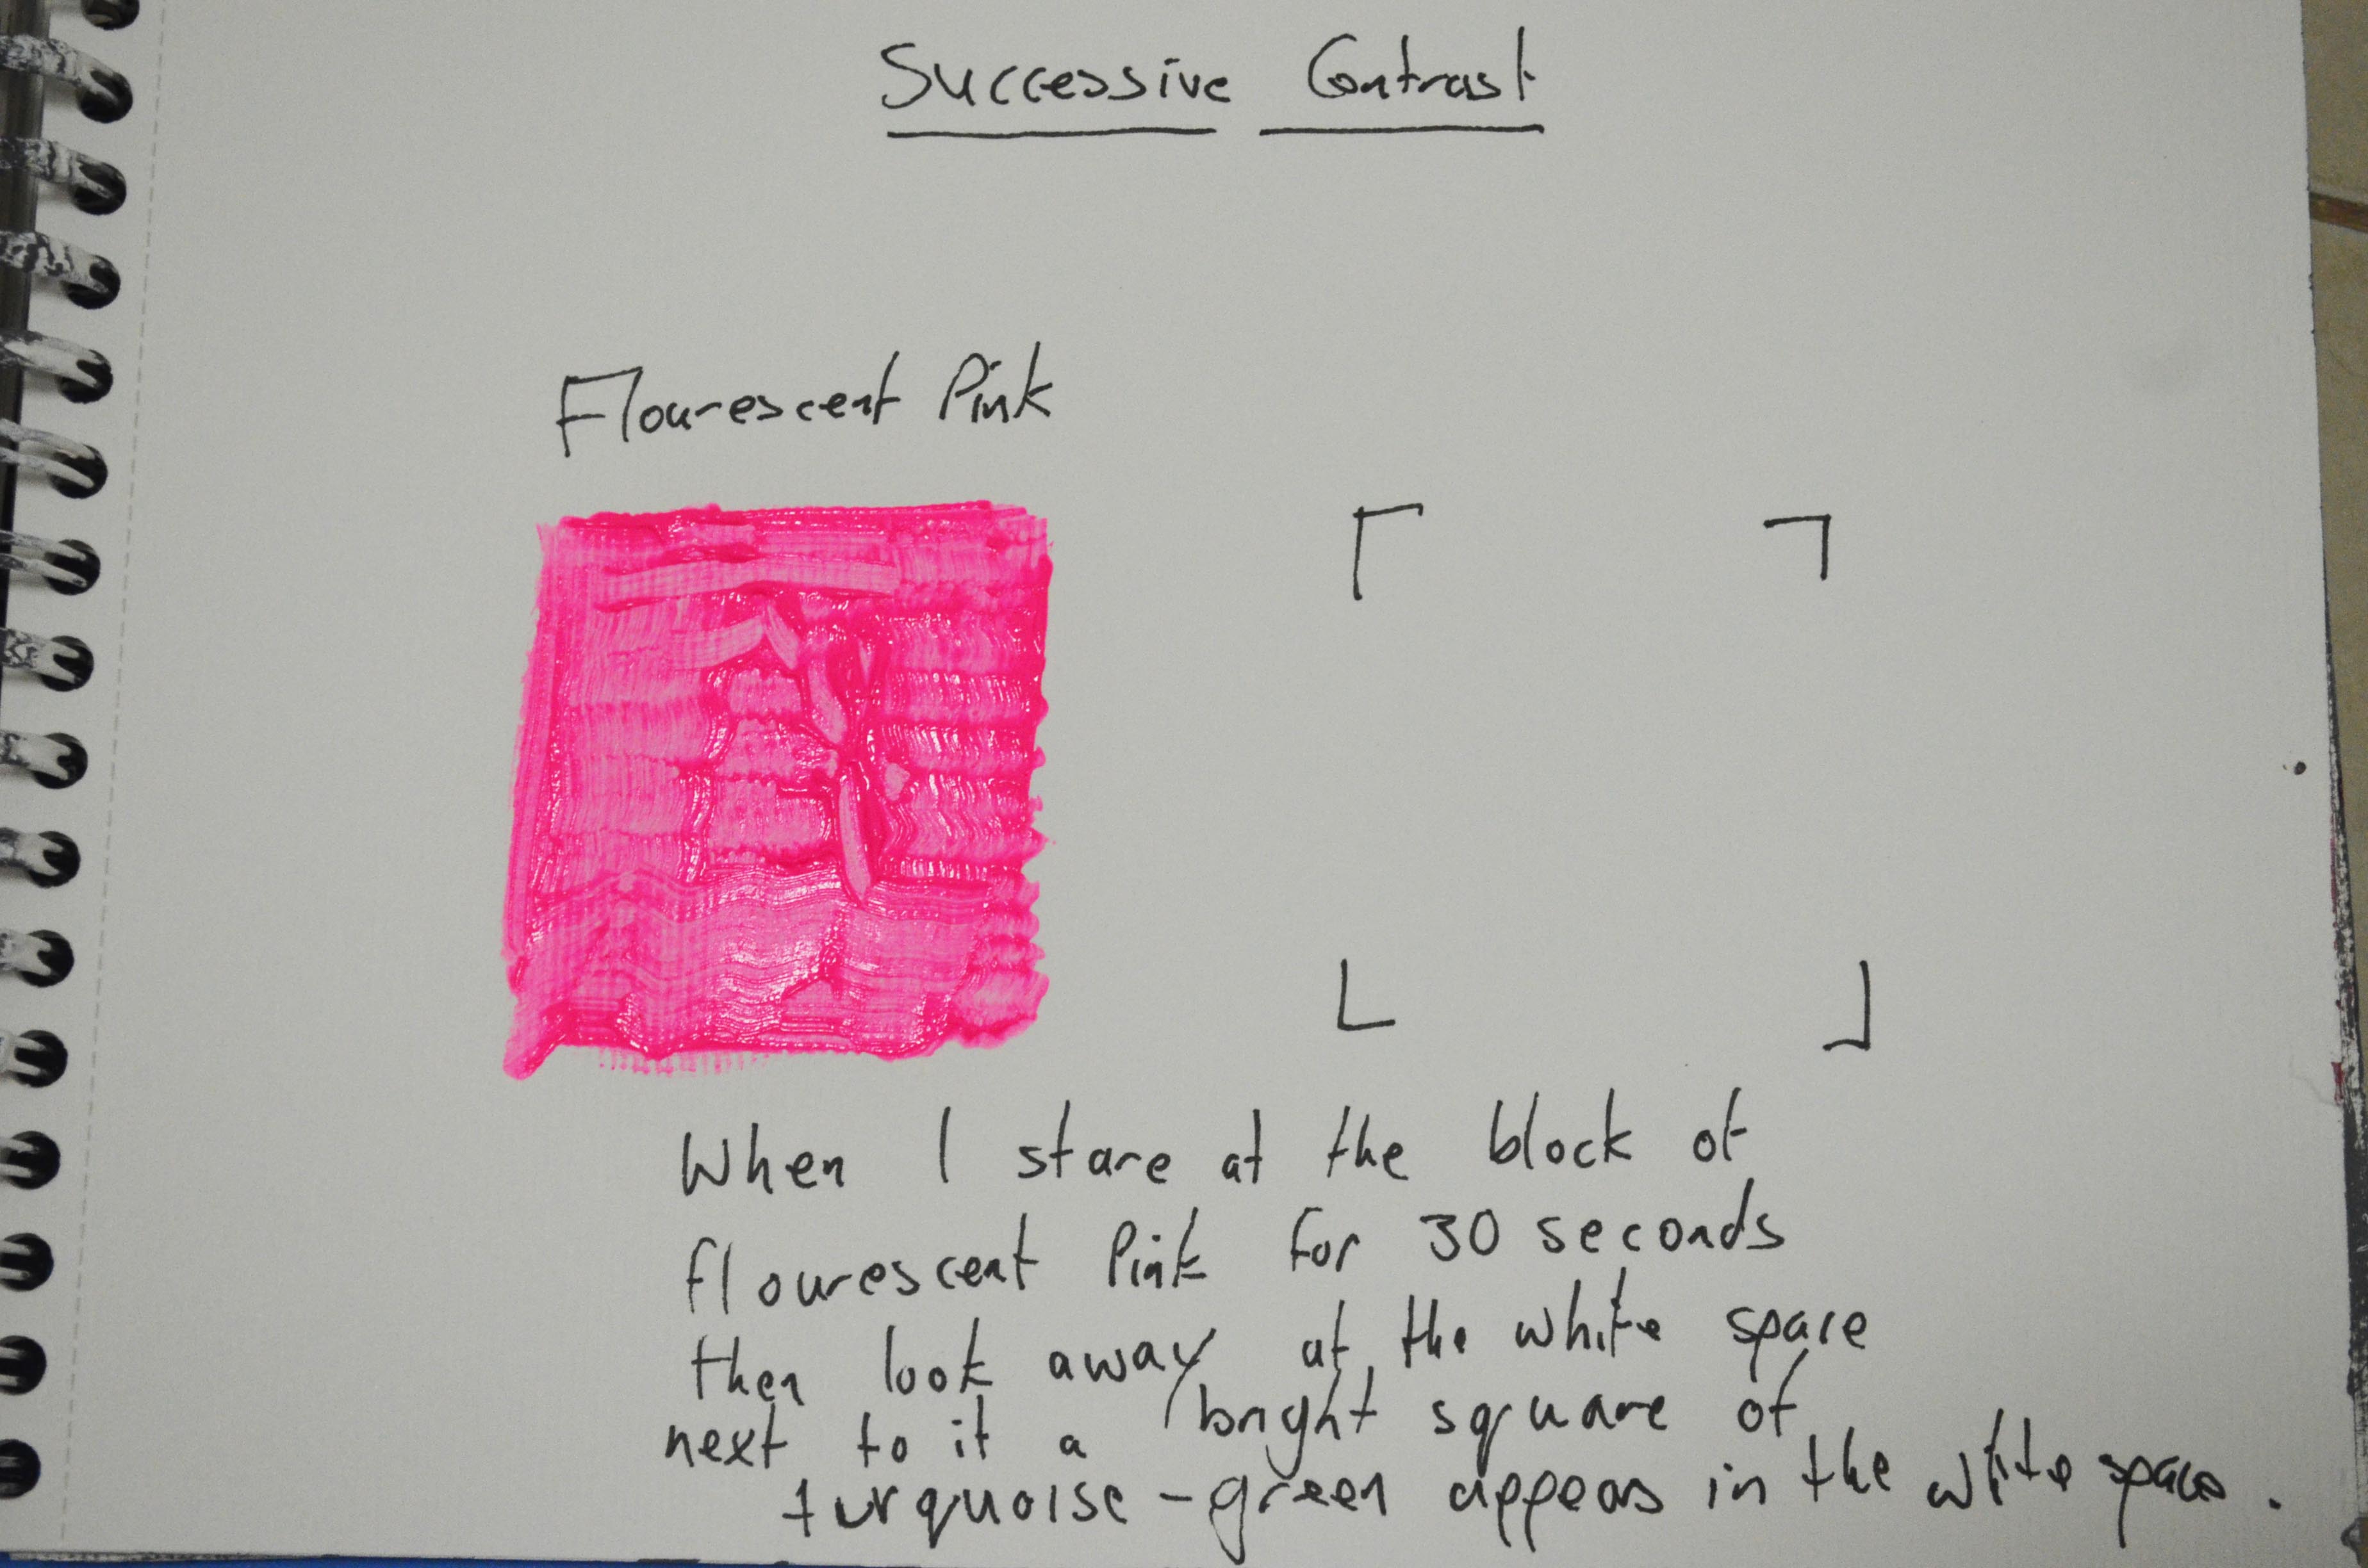 Successive Contrast
Flourescent Pink
When I stare at the block of
flourescent Pink for 30 seconds
then look away at the white space
next to it a bright square of
turquoise - green appears in the white space.